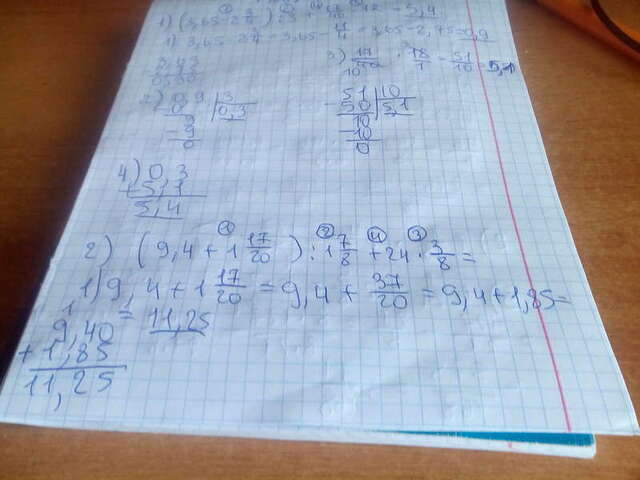 1) (3,65-2 3/4) : 3 + = 5,4
1) 3,65-2 3/4 = 3,65 - 11/4 = 3,65-2,75=0,9
3) 17/10 · 18/1 = 51/10 = 5,1
2) 0,9 | 3
0 0,3
9
-9
0
51 | 10
- 50 5,1
10
-10
0
4) 0,3
5,1
5,4
2) (9,4 + 1 17/20) : 1 7/8 + 24 · 3/8 =
1) 9 4 + 1 17/20 = 9,4 + 37/20 = 9,4+1,85=
= 11,25
1 1
9,40
+ 1,85
11,25